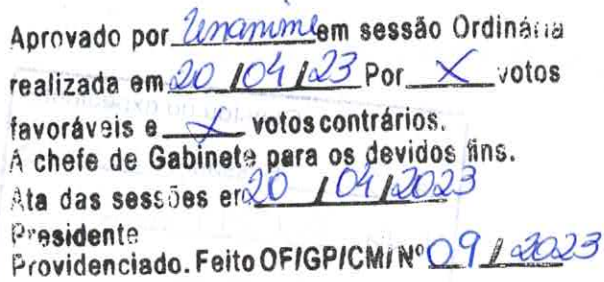 Aprovado por Unanime em sessão Ordinária
realizada em 20 / 04 / 23 Por X votos
favoráveis e X votos contrários.
A chefe de Gabinete para os devidos fins.
Ata das sessões em 20 / 04 / 2023
Presidente
Providenciado. Feito OF/GP/CM/ Nº 09 / 2023